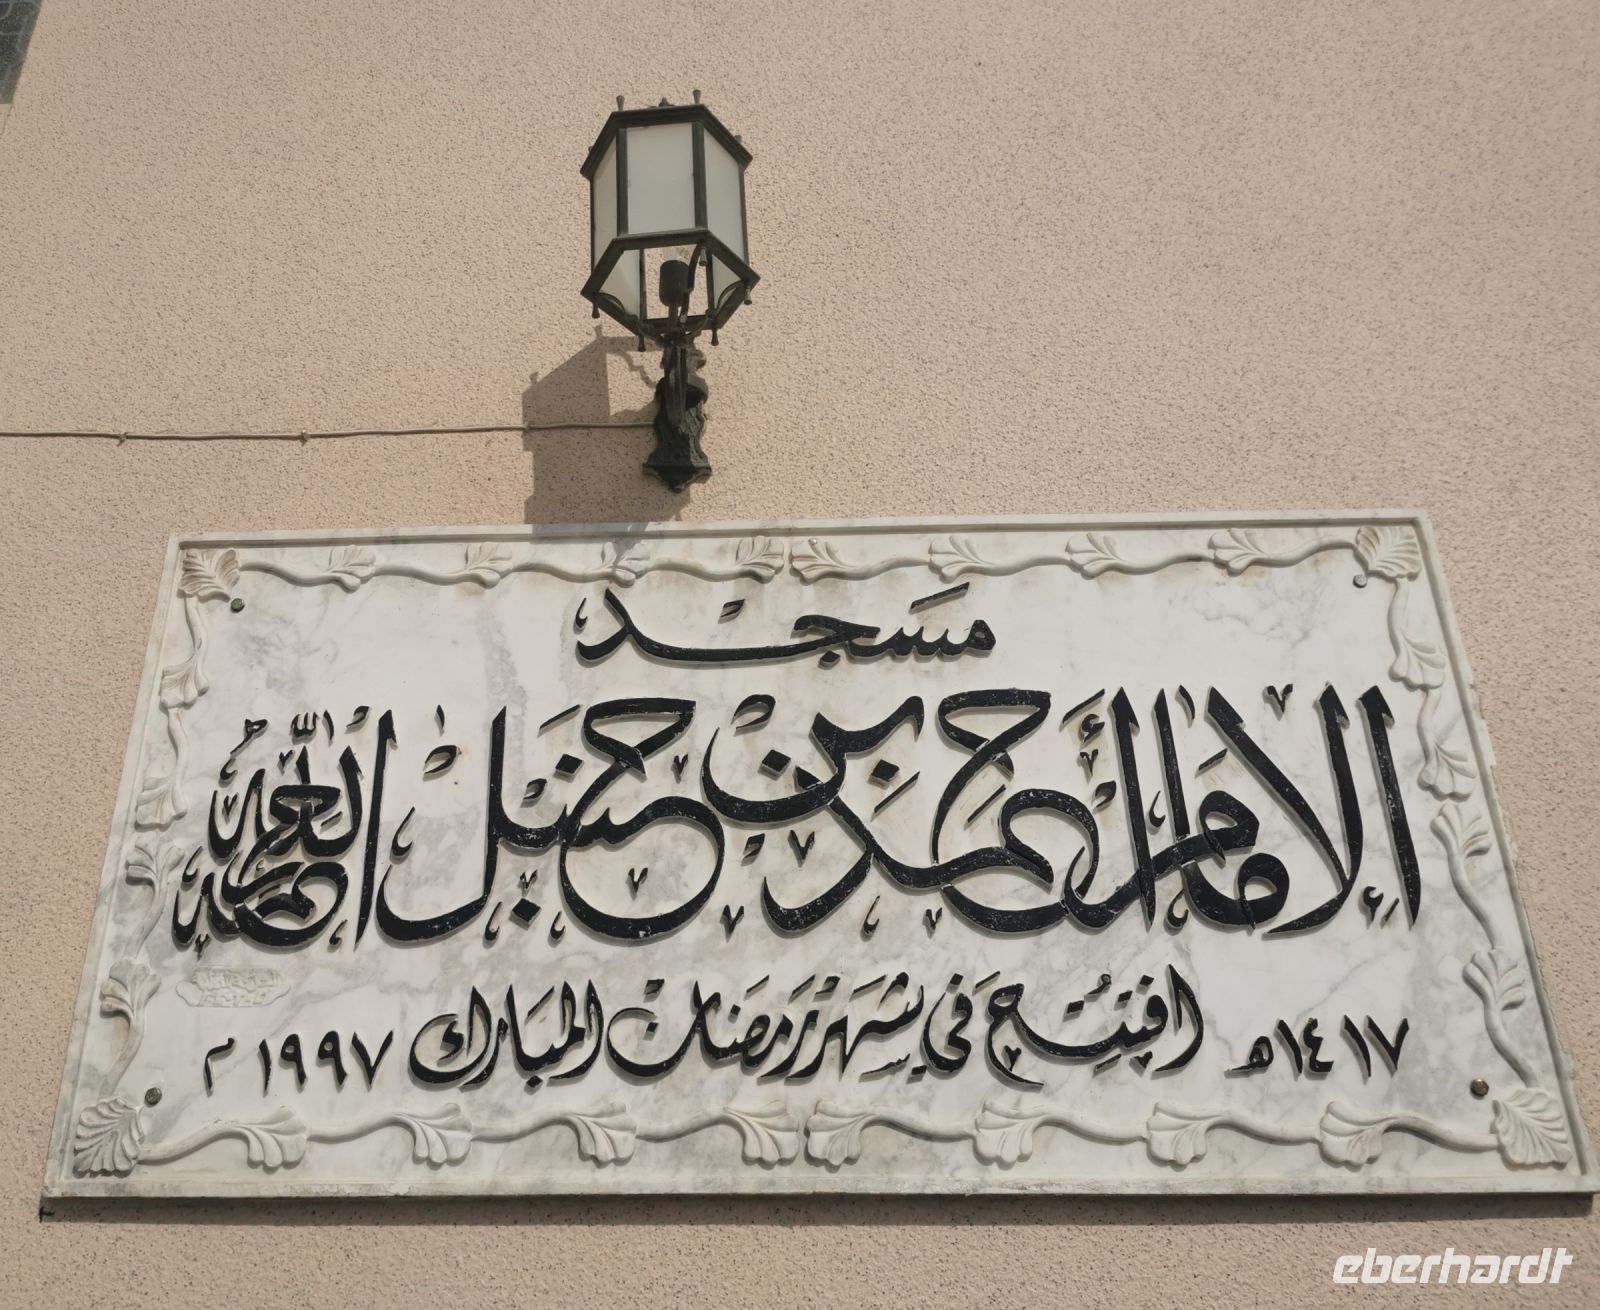 مسجد
الإمام أحمد بن حنبل
١٤١٧ هـ افتتح في شهر رمضان المبارك ١٩٩٧ م
eberhardt